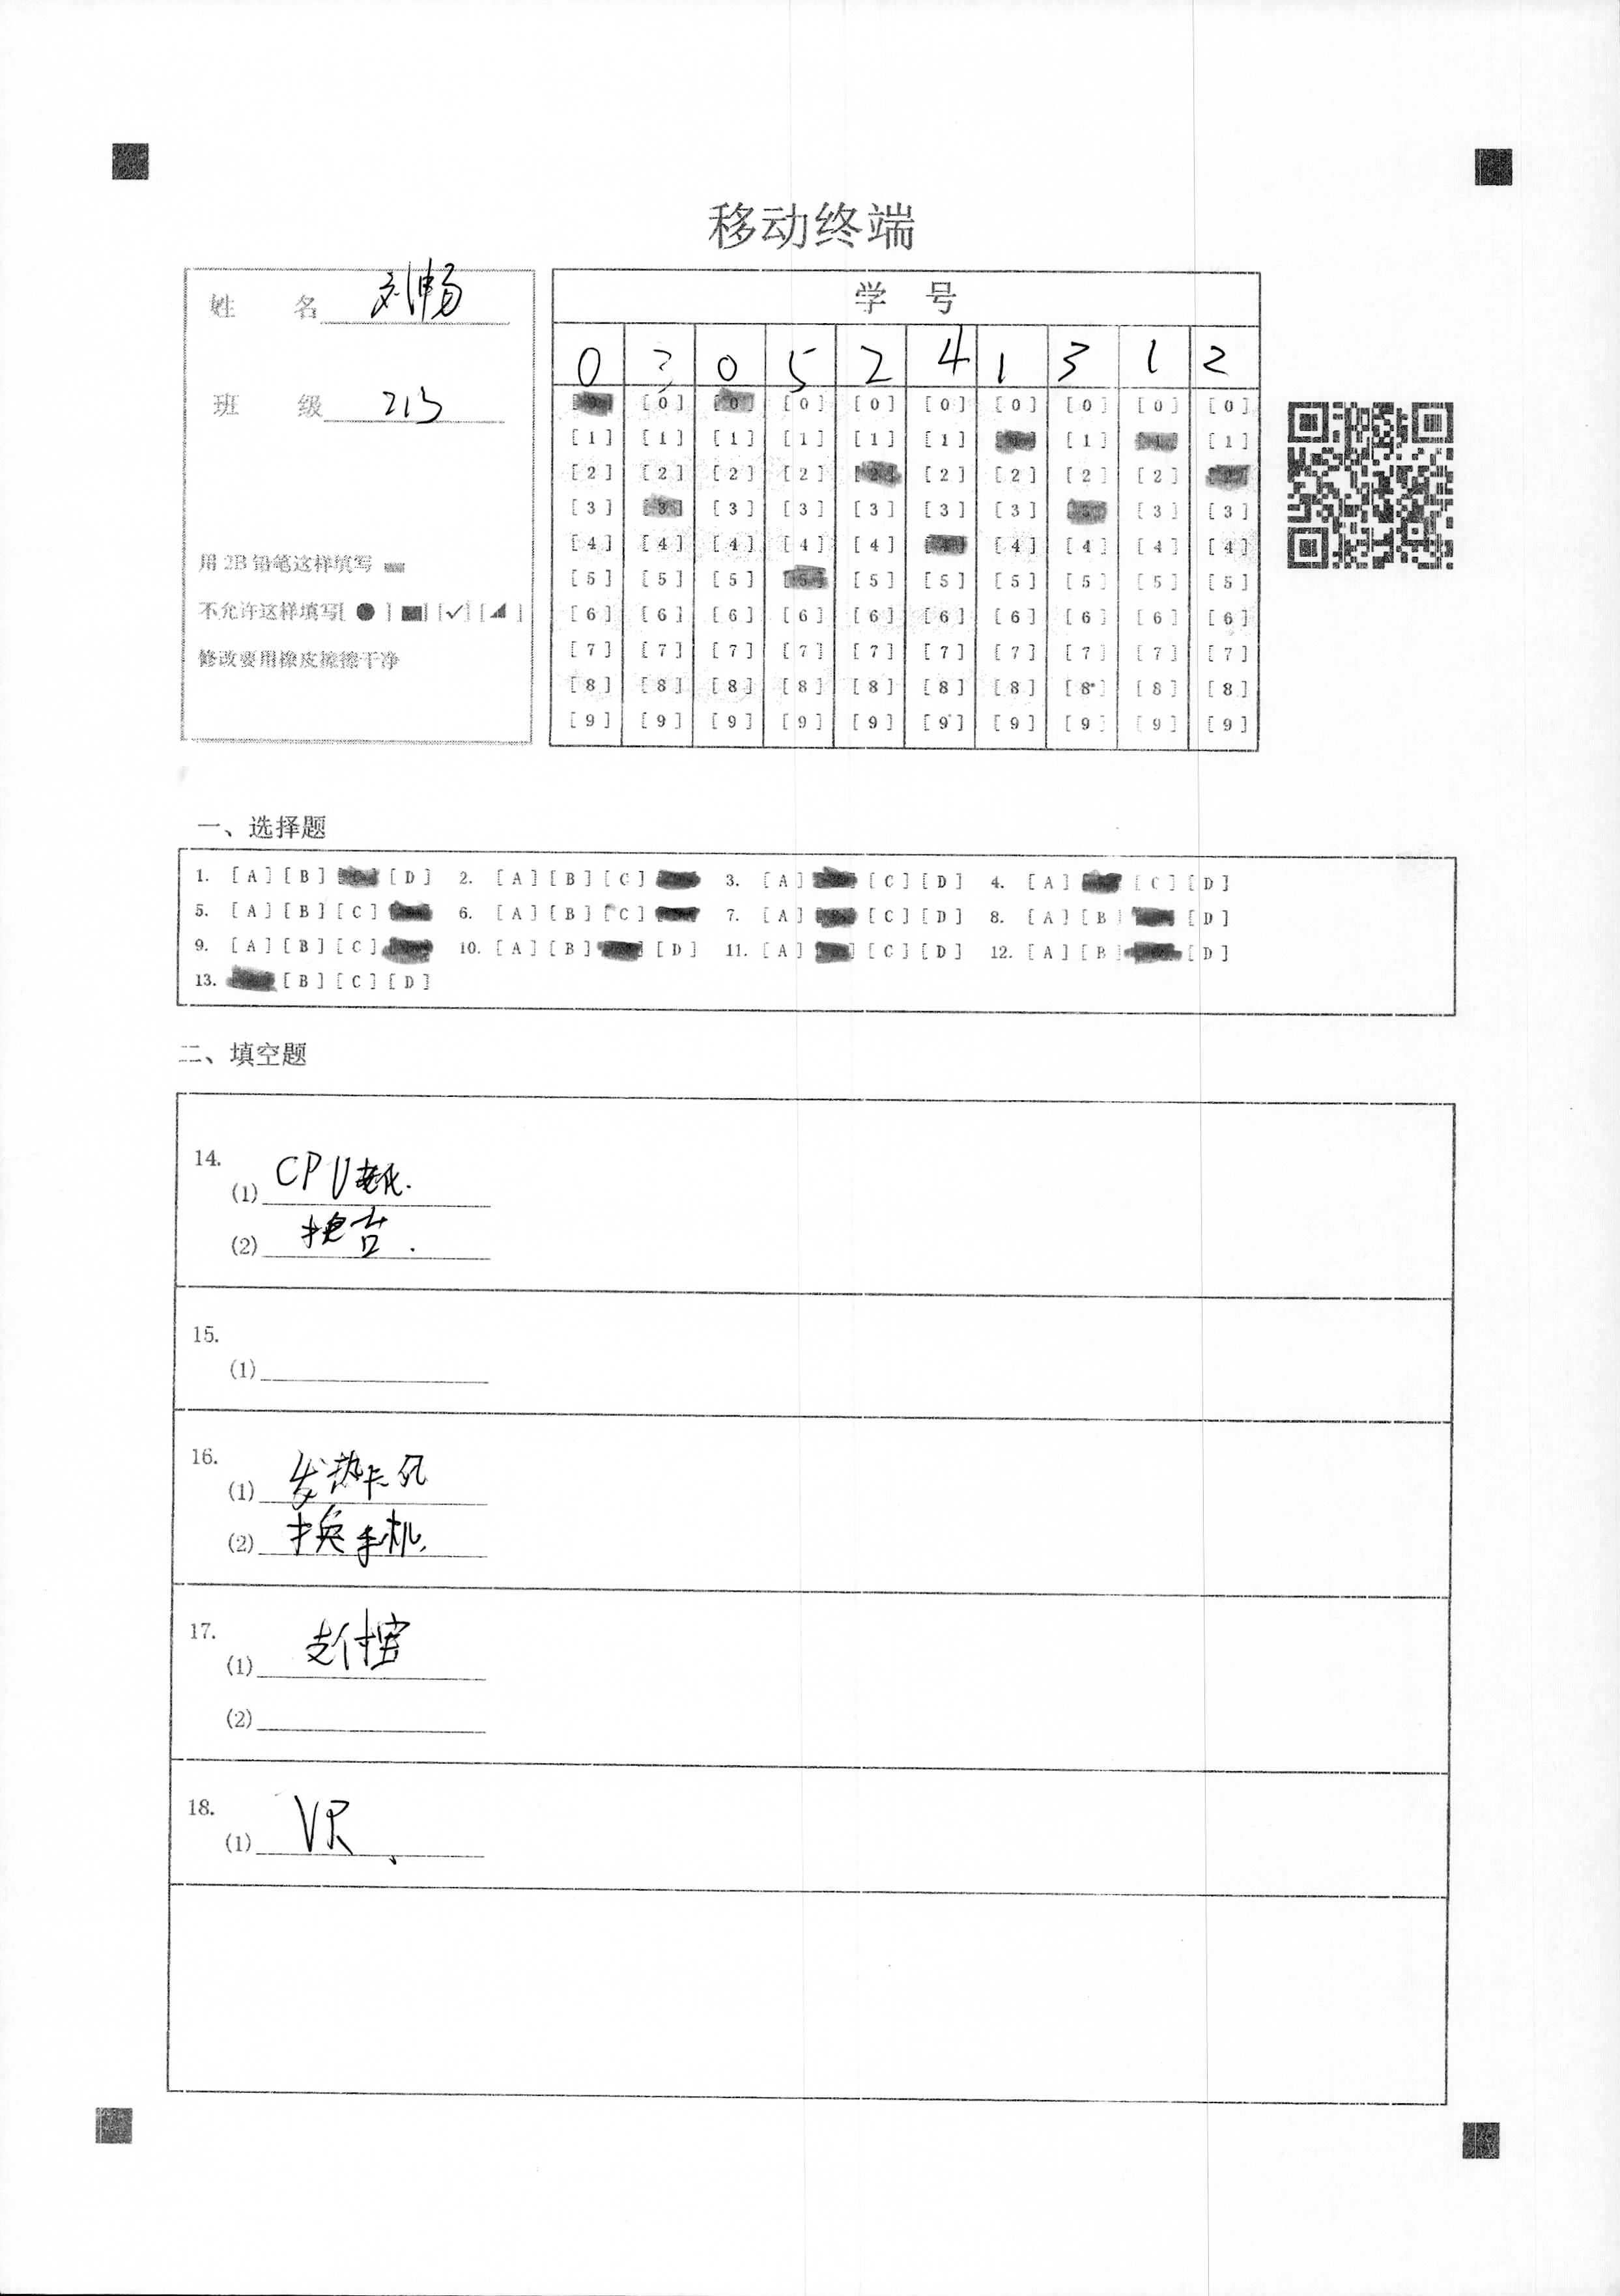 移动终端
姓 名 刘畅
班 级 213
用 2B 铅笔这样填写
不允许这样填写[ ● ] [■] [✓] [◢ ]
修改要用橡皮擦擦干净
学 号
0 3 0 5 2 4 1 3 1 2
[0] [0] [0] [0] [0] [0] [0] [0]
[1] [1] [1] [1] [1] [1] [1] [1]
[2] [2] [2] [2] [2] [2] [2] [2]
[3] [3] [3] [3] [3] [3] [3] [3] [3] [3]
[4] [4] [4] [4] [4] [4] [4] [4] [4] [4]
[5] [5] [5] [5] [5] [5] [5] [5] [5] [5]
[6] [6] [6] [6] [6] [6] [6] [6] [6] [6]
[7] [7] [7] [7] [7] [7] [7] [7] [7] [7]
[8] [8] [8] [8] [8] [8] [8] [8] [8] [8]
[9] [9] [9] [9] [9] [9] [9] [9] [9] [9]
一、选择题
1. [A] [B] [D] 2. [A] [B] [C] 3. [A] [C] [D] 4. [A] [C] [D]
5. [A] [B] [C] 6. [A] [B] [C] 7. [A] [C] [D] 8. [A] [B] [D]
9. [A] [B] [C] 10. [A] [B] [D] 11. [A] [C] [D] 12. [A] [B] [D]
13. [B] [C] [D]
二、填空题
14.
(1) CPU老化.
(2)
15.
(1)
16.
(1) 发热卡死
(2) 换手机.
17.
(1) 支付宝
(2)
18.
(1) VR、